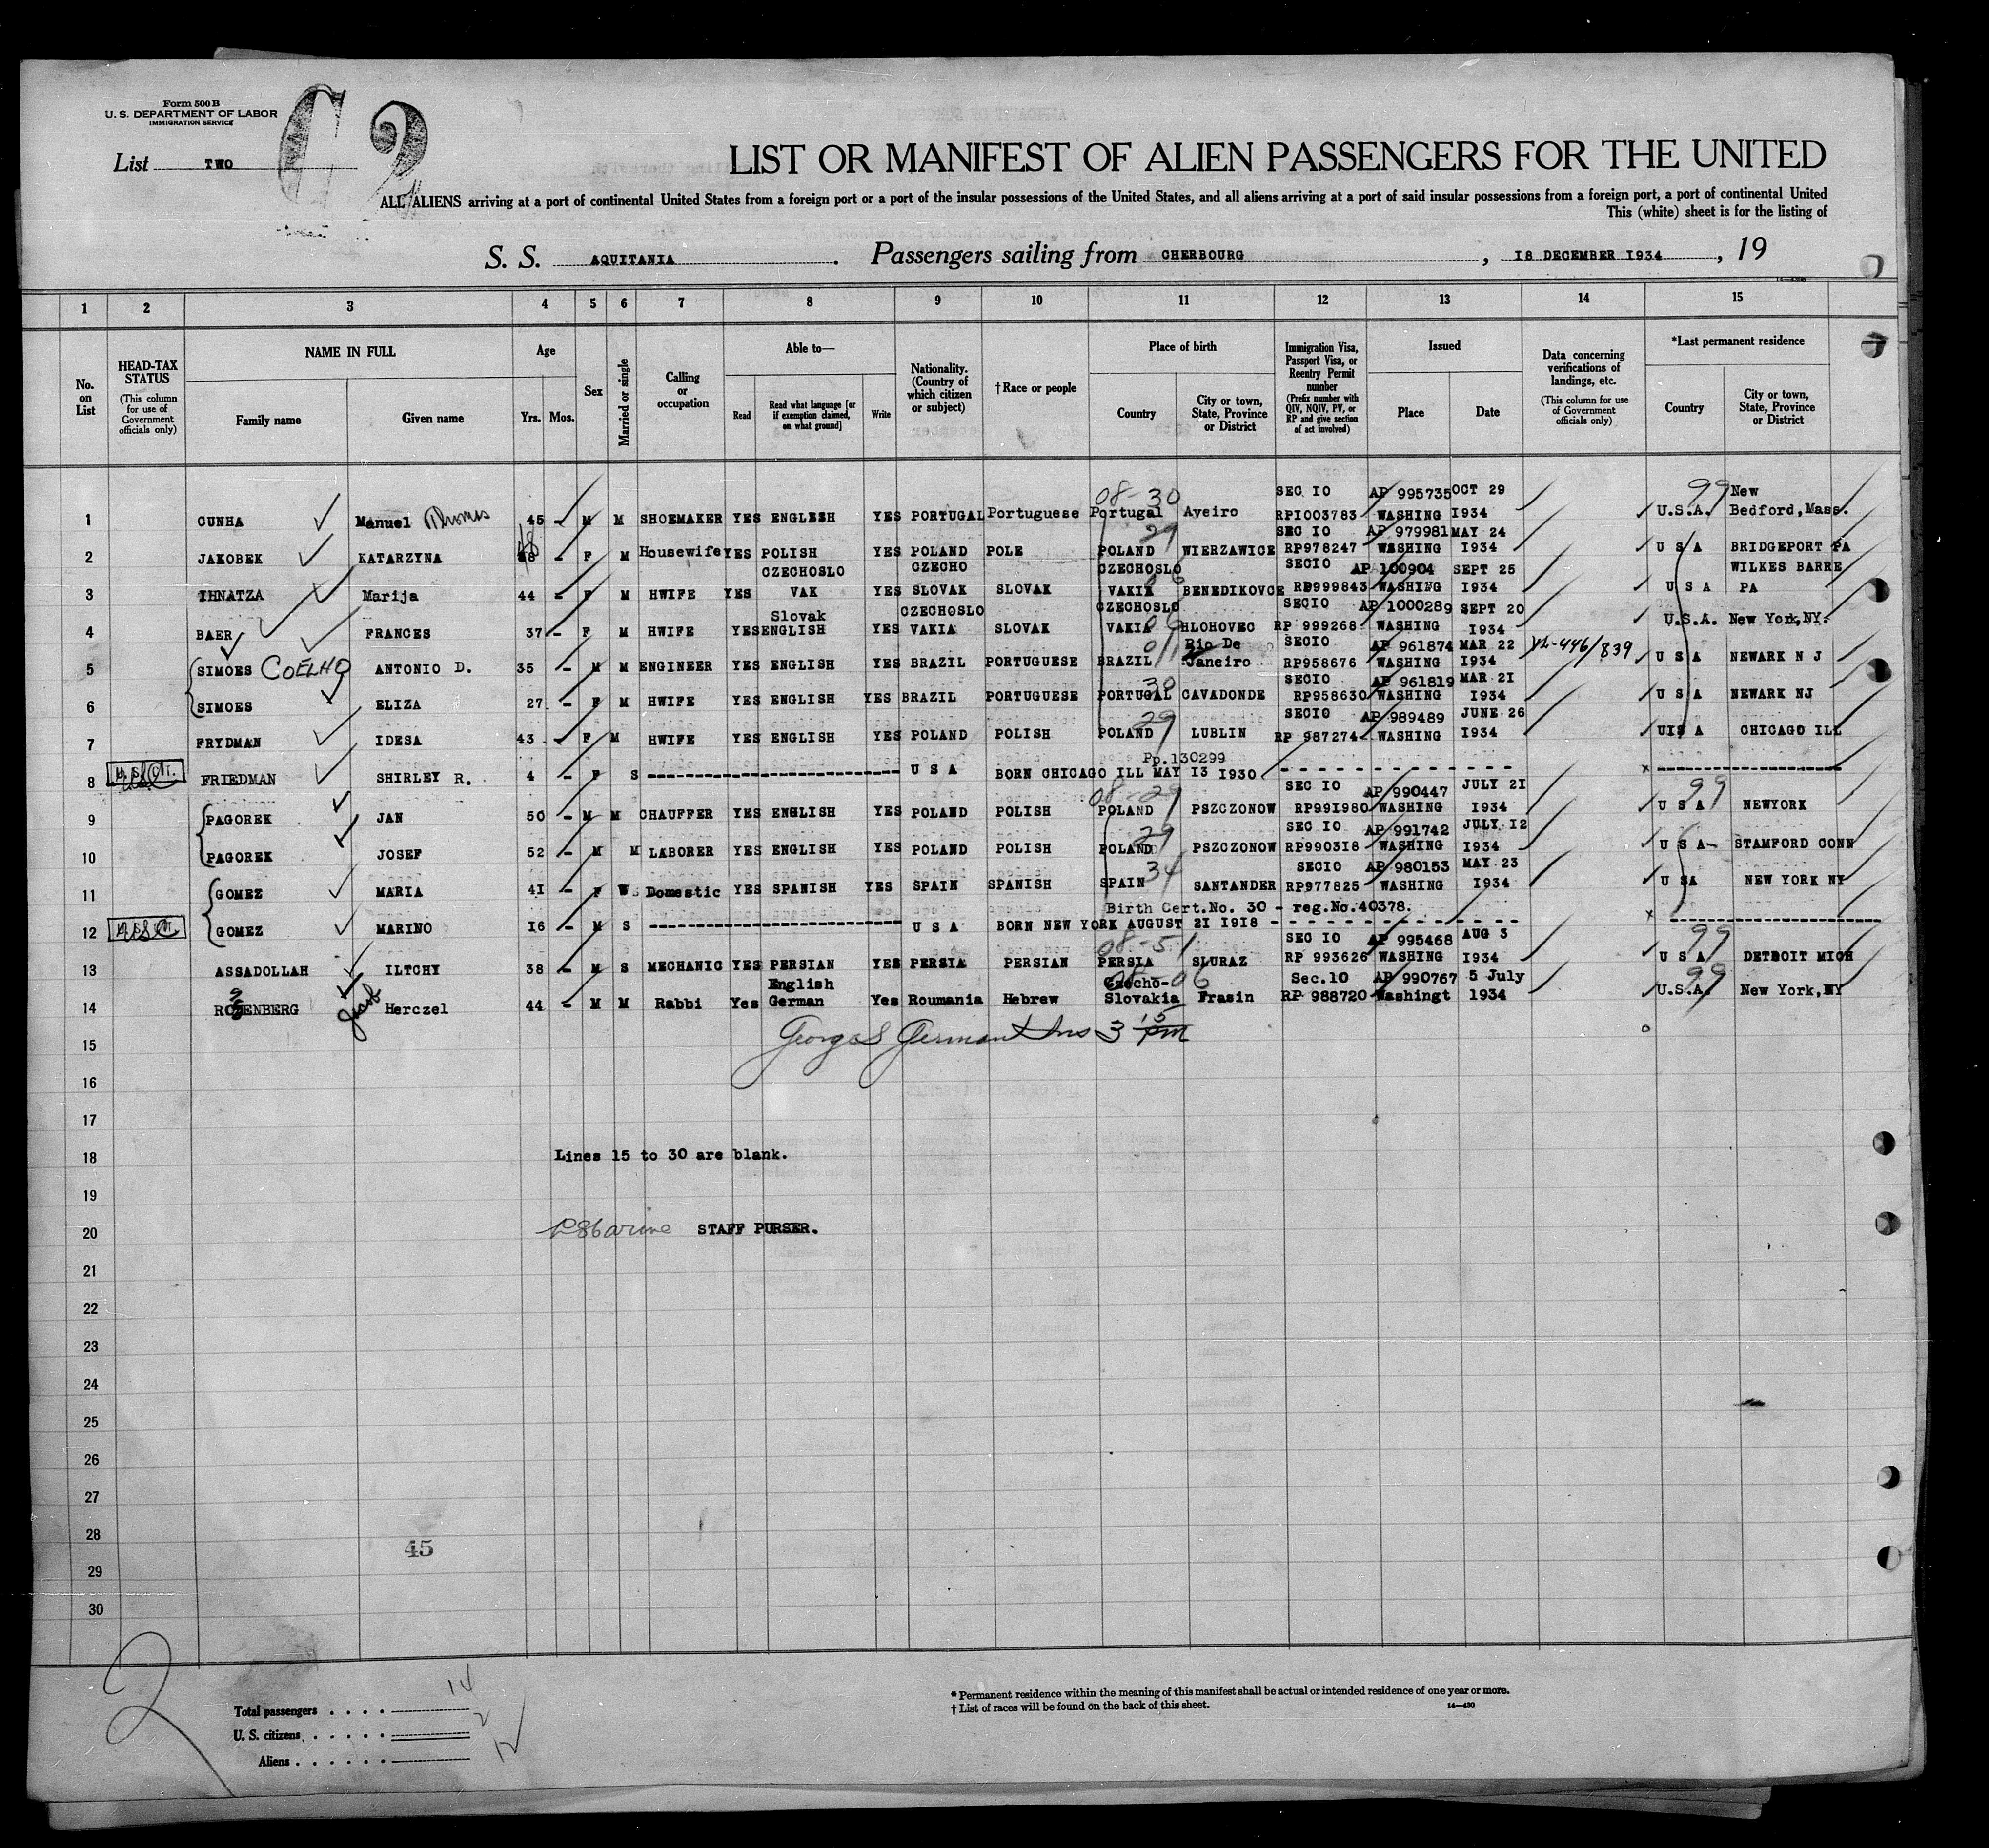 Form 500 B
U. S. DEPARTMENT OF LABOR
IMMIGRATION SERVICE
C 2
List TWO
LIST OR MANIFEST OF ALIEN PASSENGERS FOR THE UNITED
ALL ALIENS arriving at a port of continental United States from a foreign port or a port of the insular possessions of the United States, and all aliens arriving at a port of said insular possessions from a foreign port, a port of continental United
This (white) sheet is for the listing of
S. S. AQUITANIA. Passengers sailing from CHERBOURG, 18 DECEMBER 1934, 19
1 2 3 4 5 6 7 8 9 10 11 12 13 14 15
No. on List
HEAD-TAX STATUS (This column for use of Government officials only)
NAME IN FULL Family name Given name
Age Yrs. Mos.
Sex
Married or single
Calling or occupation
Able to— Read Read what language [or if exemption claimed, on what ground] Write
Nationality. (Country of which citizen or subject)
†Race or people
Place of birth Country City or town, State, Province or District
Immigration Visa, Passport Visa, or Reentry Permit number (Prefix number with QIV, NQIV, PV, or RP and give section of act involved)
Issued Place Date
Data concerning verifications of landings, etc. (This column for use of Government officials only)
*Last permanent residence Country City or town, State, Province or District
08-30 SEC IO AP 995735 OCT 29 99 New
1 CUNHA Manuel Thomas 45 - M M SHOEMAKER YES ENGLISH YES PORTUGAL Portuguese Portugal Aveiro RPI003783 WASHING I934 U.S.A. Bedford, Mass.
29 SEC IO AP 979981 MAY 24
2 JAKOBEK KATARZYNA 48 - F M Housewife YES POLISH YES POLAND POLE POLAND WIERZAWICE RP978247 WASHING I934 U S A BRIDGEPORT PA
CZECHOSLO CZECHO CZECHOSLO SECIO AP 100904 SEPT 25 WILKES BARRE
3 IHNATZA Marija 44 - F M HWIFE YES VAK YES SLOVAK SLOVAK VAKIA 06 BENEDIKOVCE RP999843 WASHING I934 U S A PA
Slovak CZECHOSLO CZECHOSLO SECIO AP 1000289 SEPT 20
4 BAER FRANCES 37 - F M HWIFE YES ENGLISH YES VAKIA SLOVAK VAKIA 06 HLOHOVEC RP 999268 WASHING I934 U.S.A. New York, NY.
01 Rio De SECIO AP 961874 MAR 22 VL-446/839
5 SIMOES COELHO ANTONIO D. 35 - M M ENGINEER YES ENGLISH YES BRAZIL PORTUGUESE BRAZIL Janeiro RP958676 WASHING I934 U S A NEWARK N J
30 SECIO AP 961819 MAR 2I
6 SIMOES ELIZA 27 - F M HWIFE YES ENGLISH YES BRAZIL PORTUGUESE PORTUGAL CAVADONDE RP958630 WASHING I934 U S A NEWARK NJ
29 SECIO AP 989489 JUNE 26
7 FRYDMAN IDESA 43 - F M HWIFE YES ENGLISH YES POLAND POLISH POLAND LUBLIN RP 987274 WASHING I934 UIS A CHICAGO ILL
Pp. 130299
8 FRIEDMAN SHIRLEY R. 4 - F S U S A BORN CHICAGO ILL MAY I3 I930 x
08-29 SEC IO AP 990447 JULY 2I 99
9 PAGOREK JAN 50 - M M CHAUFFER YES ENGLISH YES POLAND POLISH POLAND PSZCZONOW RP99I980 WASHING I934 U S A NEWYORK
29 SEC IO AP 991742 JULY I2
10 PAGOREK JOSEF 52 - M M LABORER YES ENGLISH YES POLAND POLISH POLAND PSZCZONOW RP990318 WASHING I934 U S A- STAMFORD CONN
34 SECIO AP 980153 MAY 23
11 GOMEZ MARIA 4I - F W Domestic YES SPANISH YES SPAIN SPANISH SPAIN SANTANDER RP977825 WASHING I934 U SA NEW YORK NY
Birth Cert. No. 30 - reg. No. 40378.
12 GOMEZ MARINO I6 - M S U S A BORN NEW YORK AUGUST 2I I9I8 x
08-51 SEC IO AP 995468 AUG 3 99
13 ASSADOLLAH ILTCHY 38 - M S MECHANIC YES PERSIAN YES PERSIA PERSIAN PERSIA SLURAZ RP 993626 WASHING I934 U S A DETROIT MICH
English Czecho- 08-06 Sec.10 AP 990767 5 July 99
14 ROZENBERG Jacob Herczel 44 - M M Rabbi Yes German Yes Roumania Hebrew Slovakia Frasin RP 988720 Washingt 1934 U.S.A. New York, NY
15 George S German Ins 3 15 pm
16
17
18 Lines 15 to 30 are blank.
19
20 STAFF PURSER.
21
22
23
24
25
26
27
28 45
29
30
2
Total passengers . . . . 14
U. S. citizens . . . . . 2
Aliens . . . . . . 12
* Permanent residence within the meaning of this manifest shall be actual or intended residence of one year or more.
† List of races will be found on the back of this sheet. 14—430